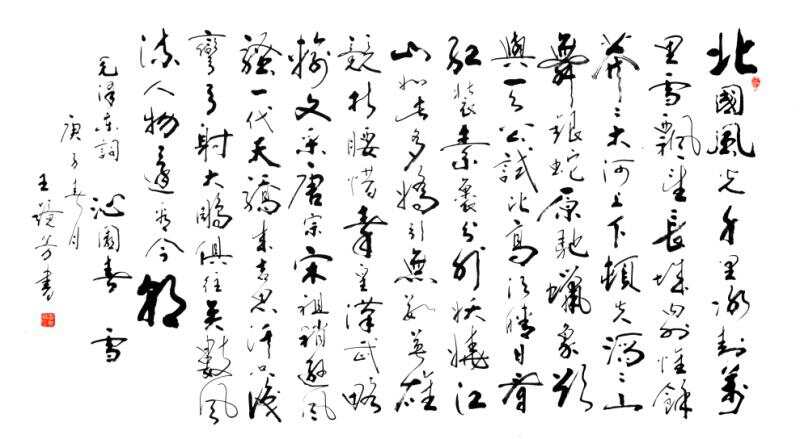 北國風光千里冰封萬
里雪飄望長城內外惟餘
莽〻大河上下頓失滔〻山
舞銀蛇原馳蠟象欲
與天公試比高須晴日看
紅裝素裹分外妖嬈江
山如此多嬌引無數英雄
競折腰惜秦皇漢武略
輸文采唐宗宋祖稍遜風
騷一代天驕成吉思汗只識
彎弓射大鵰俱往矣數風
流人物還看今朝
毛澤東詞 沁園春 雪
庚子春月
王 芳書